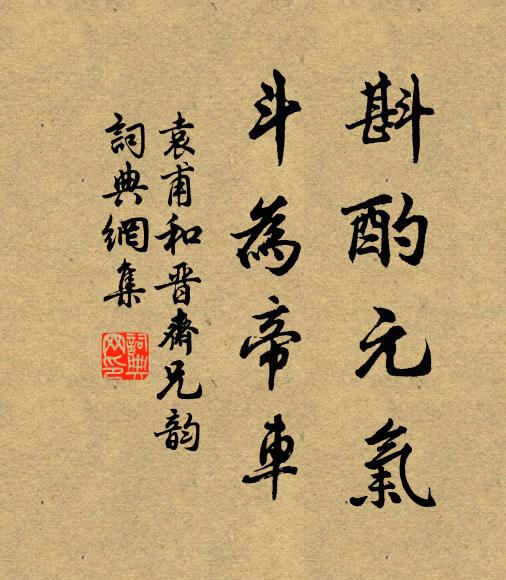 斟酌元氣
斗為帝車
袁甫和晋齋兄韵
詞典網集
詞典
网印